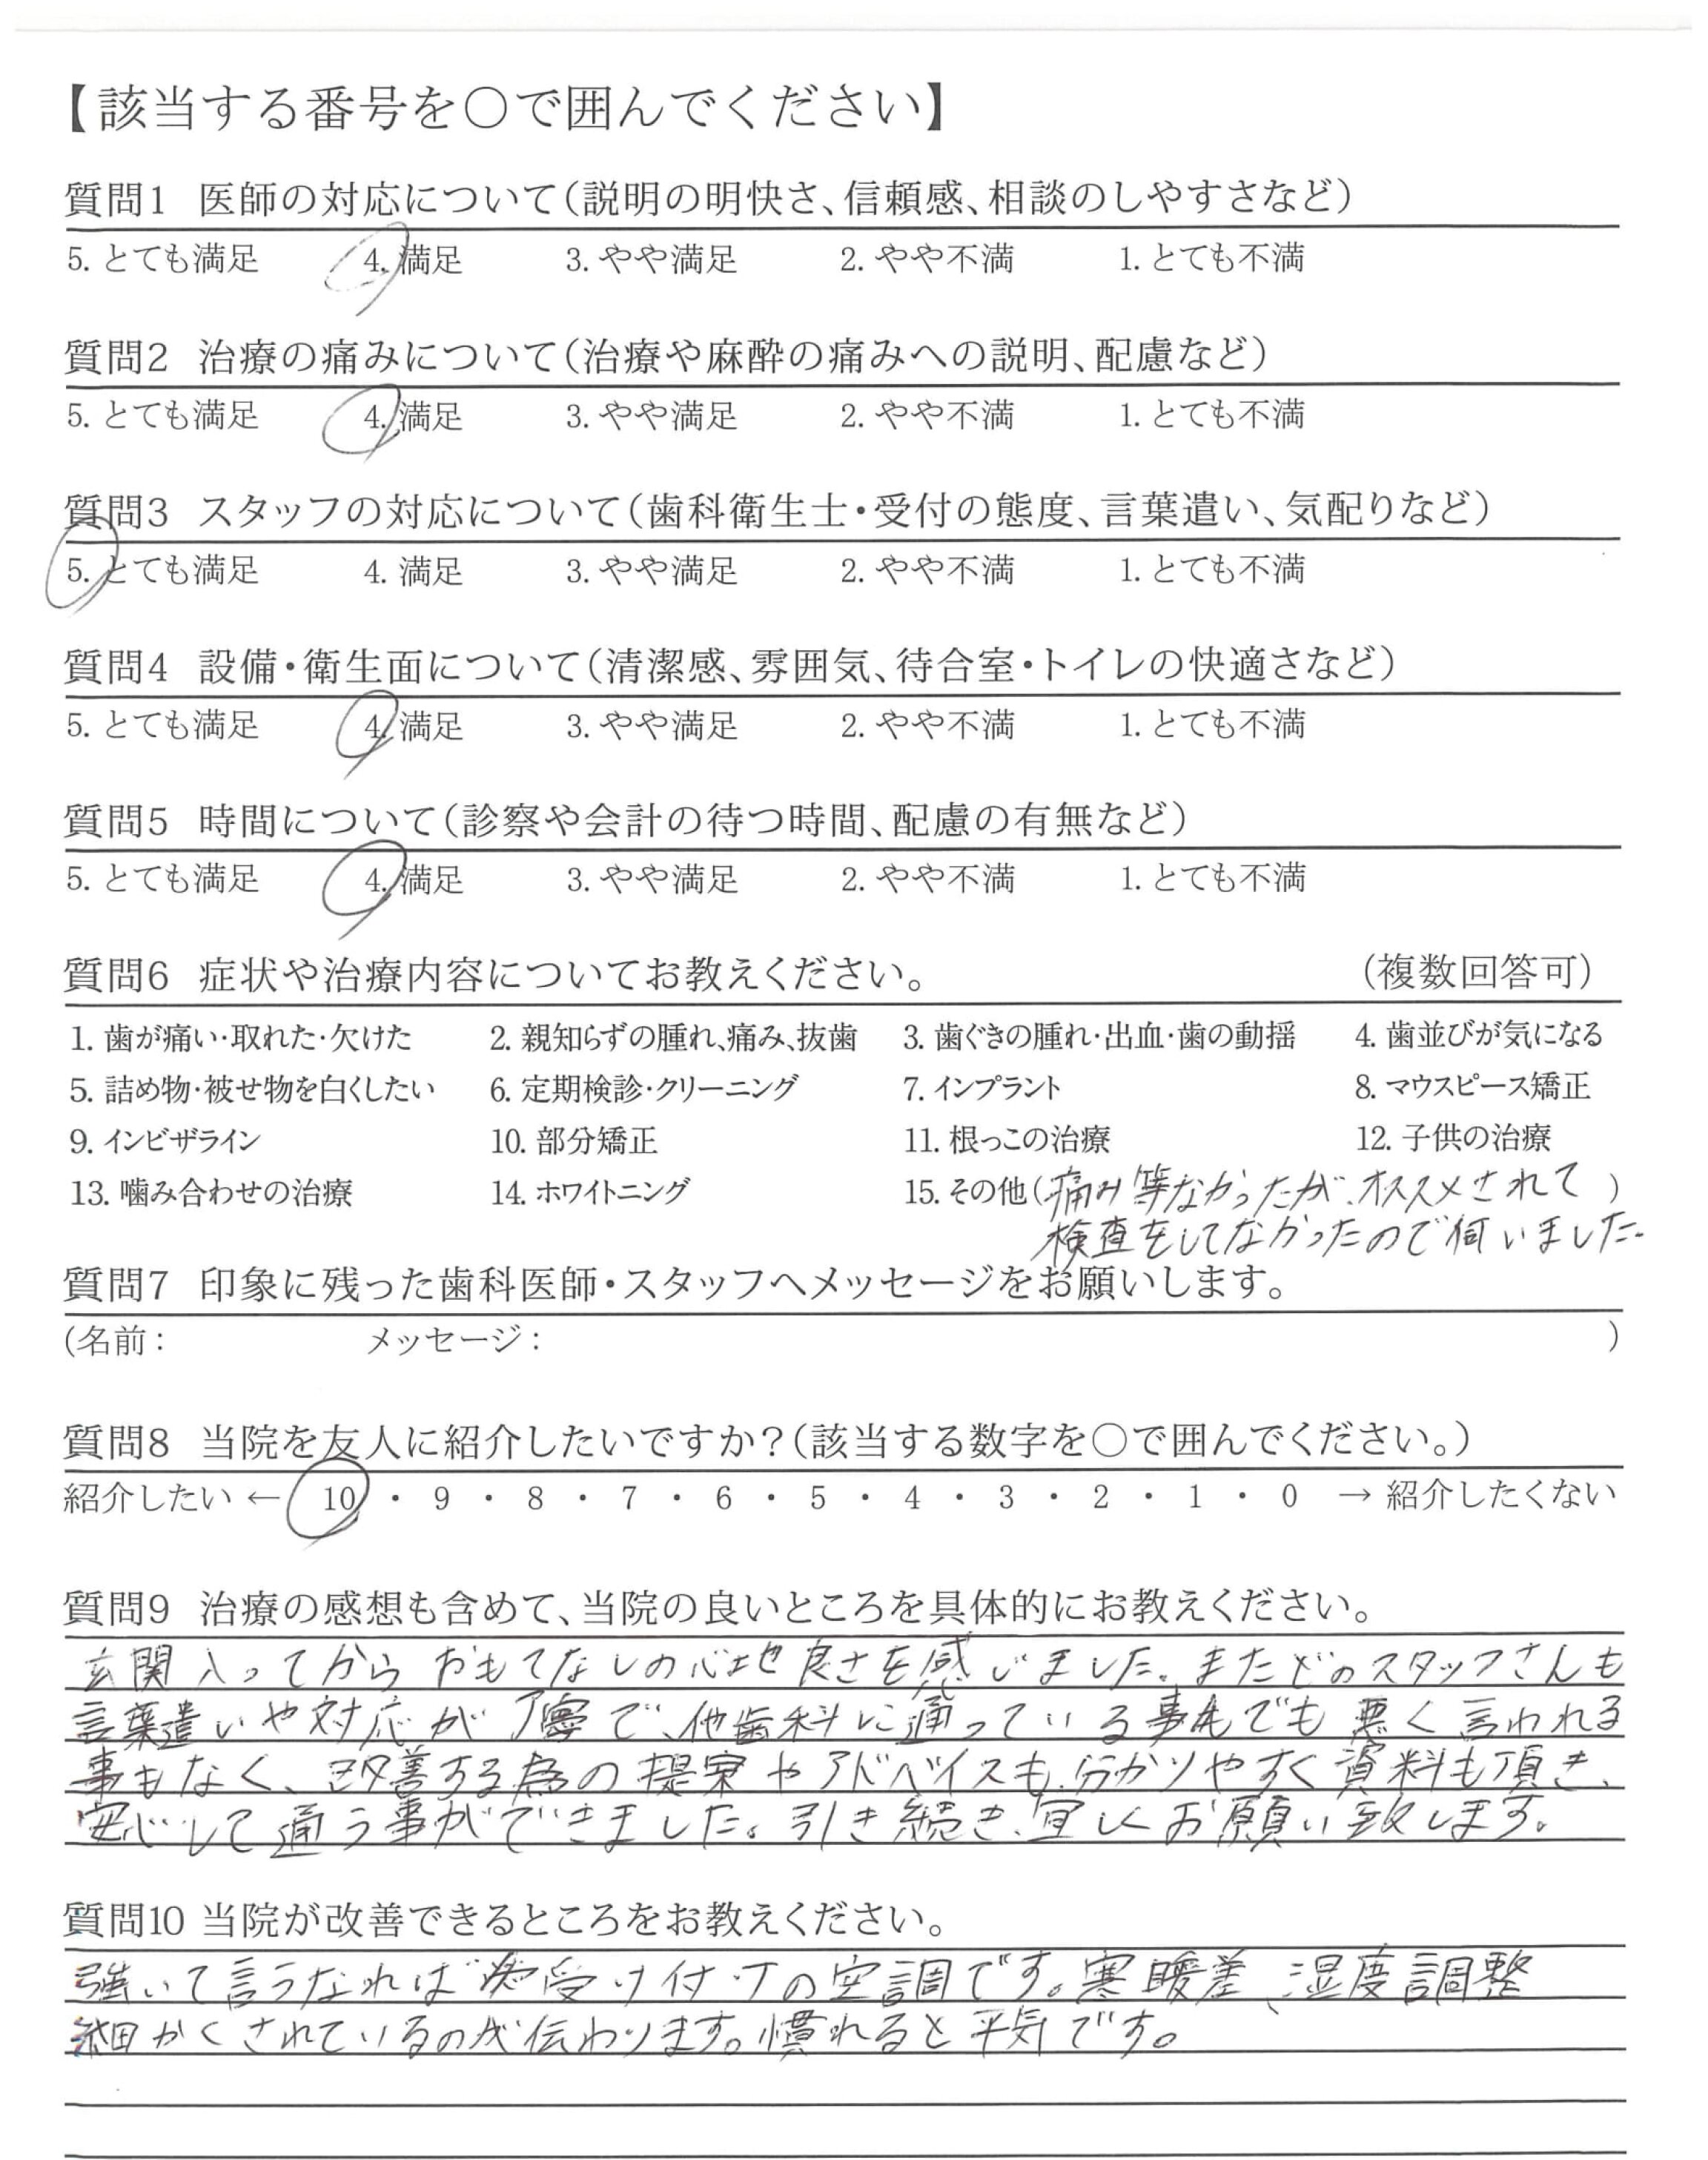 【該当する番号を○で囲んでください】
質問1 医師の対応について(説明の明快さ、信頼感、相談のしやすさなど)
5. とても満足 4. 満足 3. やや満足 2. やや不満 1. とても不満
質問2 治療の痛みについて(治療や麻酔の痛みへの説明、配慮など)
5. とても満足 4. 満足 3. やや満足 2. やや不満 1. とても不満
質問3 スタッフの対応について(歯科衛生士・受付の態度、言葉遣い、気配りなど)
5. とても満足 4. 満足 3. やや満足 2. やや不満 1. とても不満
質問4 設備・衛生面について(清潔感、雰囲気、待合室・トイレの快適さなど)
5. とても満足 4. 満足 3. やや満足 2. やや不満 1. とても不満
質問5 時間について(診察や会計の待つ時間、配慮の有無など)
5. とても満足 4. 満足 3. やや満足 2. やや不満 1. とても不満
質問6 症状や治療内容についてお教えください。 (複数回答可)
1. 歯が痛い・取れた・欠けた 2. 親知らずの腫れ、痛み、抜歯 3. 歯ぐきの腫れ・出血・歯の動揺 4. 歯並びが気になる
5. 詰め物・被せ物を白くしたい 6. 定期検診・クリーニング 7. インプラント 8. マウスピース矯正
9. インビザライン 10. 部分矯正 11. 根っこの治療 12. 子供の治療
13. 噛み合わせの治療 14. ホワイトニング 15. その他(痛み等なかったが、オススメされて)
検査をしてなかったので伺いました。
質問7 印象に残った歯科医師・スタッフへメッセージをお願いします。
(名前: メッセージ: )
質問8 当院を友人に紹介したいですか?(該当する数字を○で囲んでください。)
紹介したい ← 10 ・ 9 ・ 8 ・ 7 ・ 6 ・ 5 ・ 4 ・ 3 ・ 2 ・ 1 ・ 0 → 紹介したくない
質問9 治療の感想も含めて、当院の良いところを具体的にお教えください。
玄関入ってから おもてなしの心地良さを感じました。またどのスタッフさんも
言葉遣いや対応が丁寧で、他歯科に通っている事でも悪く言われる
事もなく、改善する為の提案やアドバイスも、分かりやすく資料も頂き、
安心して通う事ができました。引き続き、宜しくお願い致します。
質問10 当院が改善できるところをお教えください。
強いて言うなれば 受け付けの空調です。寒暖差、湿度調整
細かくされているのが伝わります。慣れると平気です。